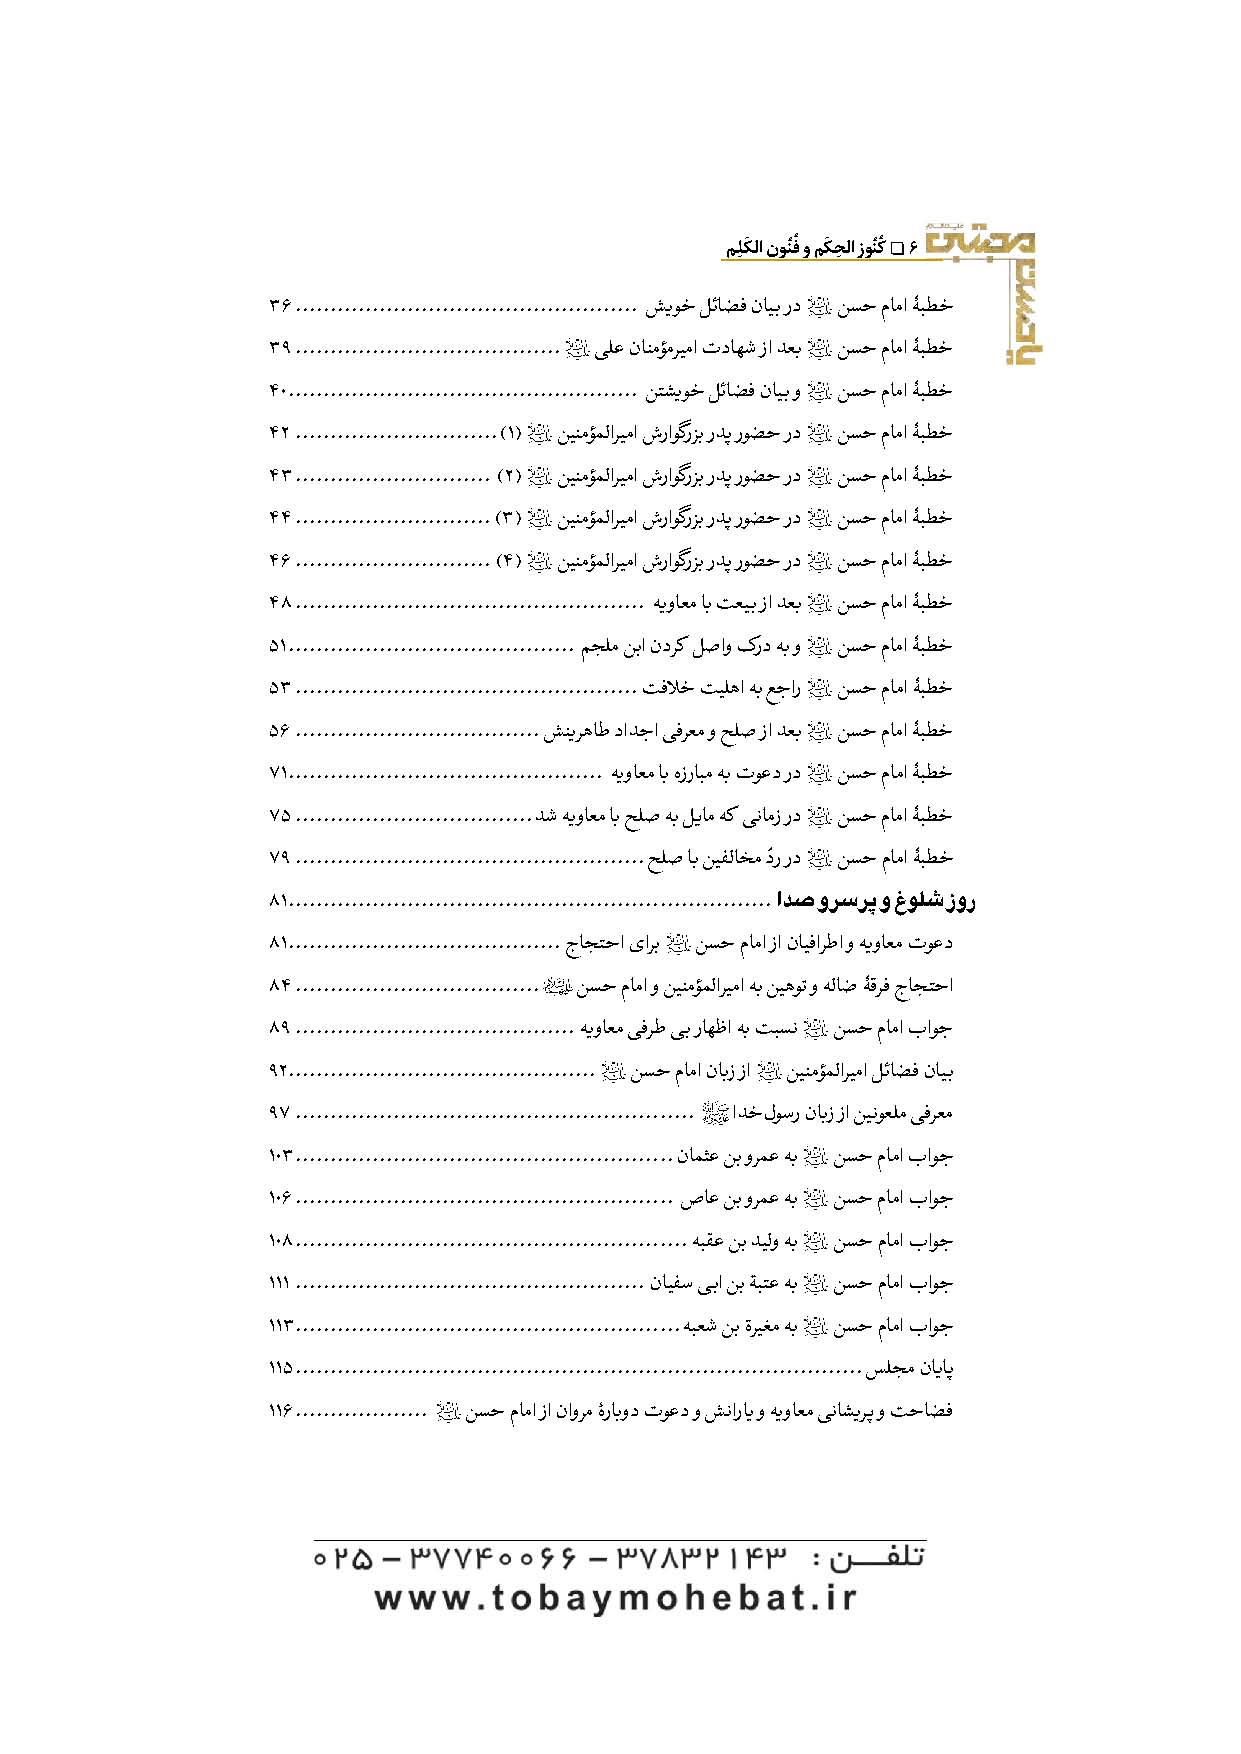 یا حسن مجتبی علیه‌السلام
۶ ❏ کُنُوز الحِکَم و فُنُون الکَلِم
خطبهٔ امام حسن علیه‌السلام در بیان فضائل خویش ................................................. ۳۶
خطبهٔ امام حسن علیه‌السلام بعد از شهادت امیرمؤمنان علی علیه‌السلام ...................................... ۳۹
خطبهٔ امام حسن علیه‌السلام و بیان فضائل خویشتن .................................................. ۴۰
خطبهٔ امام حسن علیه‌السلام در حضور پدر بزرگوارش امیرالمؤمنین علیه‌السلام (۱) ............................. ۴۲
خطبهٔ امام حسن علیه‌السلام در حضور پدر بزرگوارش امیرالمؤمنین علیه‌السلام (۲) ............................ ۴۳
خطبهٔ امام حسن علیه‌السلام در حضور پدر بزرگوارش امیرالمؤمنین علیه‌السلام (۳) ............................ ۴۴
خطبهٔ امام حسن علیه‌السلام در حضور پدر بزرگوارش امیرالمؤمنین علیه‌السلام (۴) ............................ ۴۶
خطبهٔ امام حسن علیه‌السلام بعد از بیعت با معاویه .................................................. ۴۸
خطبهٔ امام حسن علیه‌السلام و به درک واصل کردن ابن ملجم ......................................... ۵۱
خطبهٔ امام حسن علیه‌السلام راجع به اهلیت خلافت ................................................. ۵۳
خطبهٔ امام حسن علیه‌السلام بعد از صلح و معرفی اجداد طاهرینش ................................... ۵۶
خطبهٔ امام حسن علیه‌السلام در دعوت به مبارزه با معاویه ............................................. ۷۱
خطبهٔ امام حسن علیه‌السلام در زمانی که مایل به صلح با معاویه شد .................................. ۷۵
خطبهٔ امام حسن علیه‌السلام در ردّ مخالفین با صلح .................................................. ۷۹
روز شلوغ و پر سر و صدا ..................................................................... ۸۱
دعوت معاویه و اطرافیان از امام حسن علیه‌السلام برای احتجاج ....................................... ۸۱
احتجاج فرقهٔ ضاله و توهین به امیرالمؤمنین و امام حسن علیهماالسلام ................................... ۸۴
جواب امام حسن علیه‌السلام نسبت به اظهار بی طرفی معاویه ........................................ ۸۹
بیان فضائل امیرالمؤمنین علیه‌السلام از زبان امام حسن علیه‌السلام ............................................ ۹۲
معرفی ملعونین از زبان رسول خدا ﷺ ......................................................... ۹۷
جواب امام حسن علیه‌السلام به عمرو بن عثمان ...................................................... ۱۰۳
جواب امام حسن علیه‌السلام به عمرو بن عاص ...................................................... ۱۰۶
جواب امام حسن علیه‌السلام به ولید بن عقبه ........................................................ ۱۰۸
جواب امام حسن علیه‌السلام به عتبة بن ابی سفیان .................................................. ۱۱۱
جواب امام حسن علیه‌السلام به مغیرة بن شعبه ....................................................... ۱۱۳
پایان مجلس ................................................................................. ۱۱۵
فضاحت و پریشانی معاویه و یارانش و دعوت دوبارهٔ مروان از امام حسن علیه‌السلام ................... ۱۱۶
تلفـــن : ۳۷۸۳۲۱۴۳ – ۳۷۷۴۰۰۶۶ – ۰۲۵
www.tobaymohebat.ir